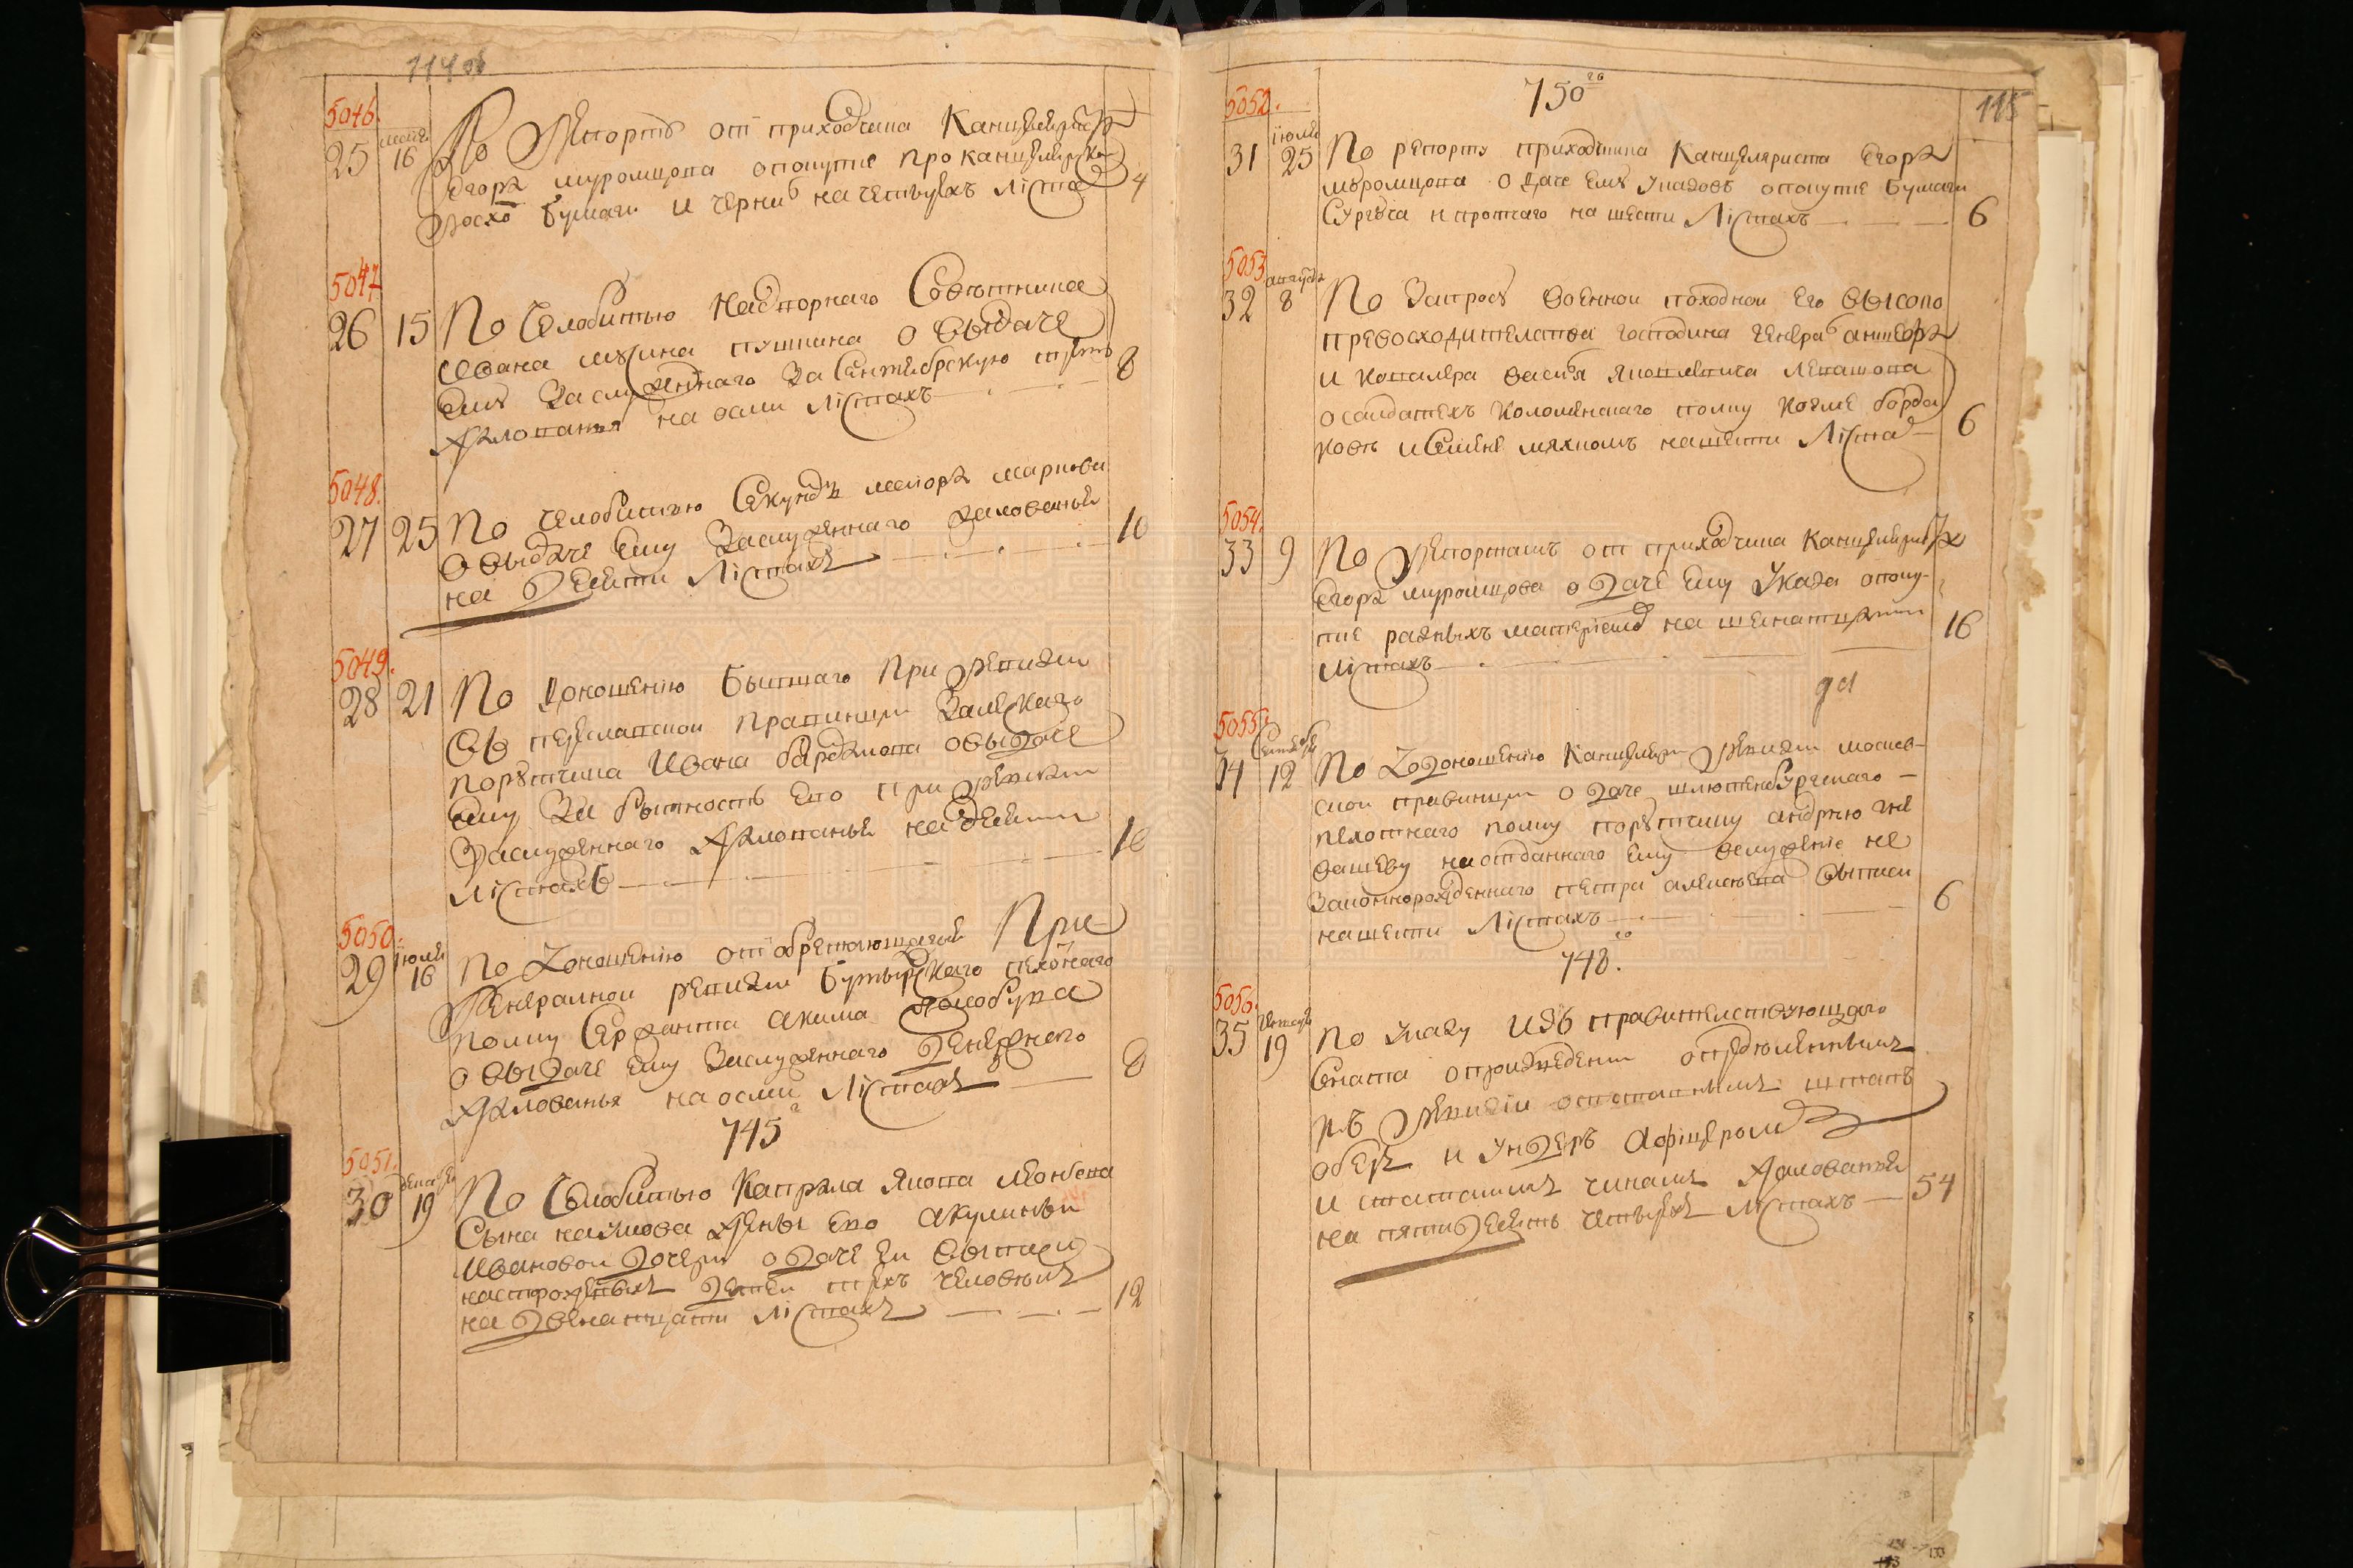 114 об
5046.
25 маия 16 По Репорту от приходчика Канцеляриста
Егора муромцова о покупке про канцелярско
росхо бумаги и чернил на четырехъ Листах 4
5047
26 15 По Челобитью Надворнаго Советника
Ивана мусина пушкина о выдаче
ему Заслуженнаго За Сентябрскую треть
жалованья на осми Листахъ 8
5048.
27 25 По челобитью Секундъ маиора маркова
о выдаче ему Заслуженнаго жалованья
на Десяти Листахъ 10
5049.
28 21 По Доношению бывшаго При ревизии
въ переславской правинции Залескаго
порутчика Ивана о выдаче
ему За бытность ево при ревизии
Заслуженнаго жалованья на десяти
Листахъ 10
5050.
29 июля 16 По Доношению от обретающагося При
Генералной ревизии бутырскаго пехотнаго
полку Сержанта акима
о выдаче ему Заслуженнаго Денежнаго
жалованья на осми Листахъ 8
745 г
5051.
30 декабря 19 По Челобитью Капрала Якова
Сына наумова жены ево акулины
Ивановой Дочери о Даче ей выписи
на Детей трехъ человекъ
на Двенатцати Листахъ 12
115
750 го
5052.
31 июля 25 По репорту приходчика Канцеляриста Егора
муромцова о даче ему указовъ о покупке бумаги
Сургуча и протчаго на шести Листахъ 6
5053
32 августа 8 По Запросу военной походной Его высоко
превосходителства господина генерал аншефа
и кавалера василья Яковлевича левашова
о салдатехъ Коломенскаго полку
и Семене на шести Листах 6
5054.
33 9 По Репортамъ от приходчика канцеляриста
Егора муромцова о Даче ему Указа о поку-
пке разныхъ материалов на шеснатцати
Листахъ 16
5055.
34 Сентября 12 По Доношению Канцелярии ревизии москов-
ской правинции о Даче шлютенбургскаго
пехотнаго полку порутчику андрею
на отданнаго ему вслужение не
Законнорожденнаго петра алексеева выписи
на шести Листахъ 6
748. го
5056.
35 19 По указу изъ правителствующаго
Сената о произведении определеннымъ
къ Ревизии штапъ
оберъ и ундеръ афицеромъ
и чинамъ жалованья
на пятидесятъ четырехъ Листахъ 54